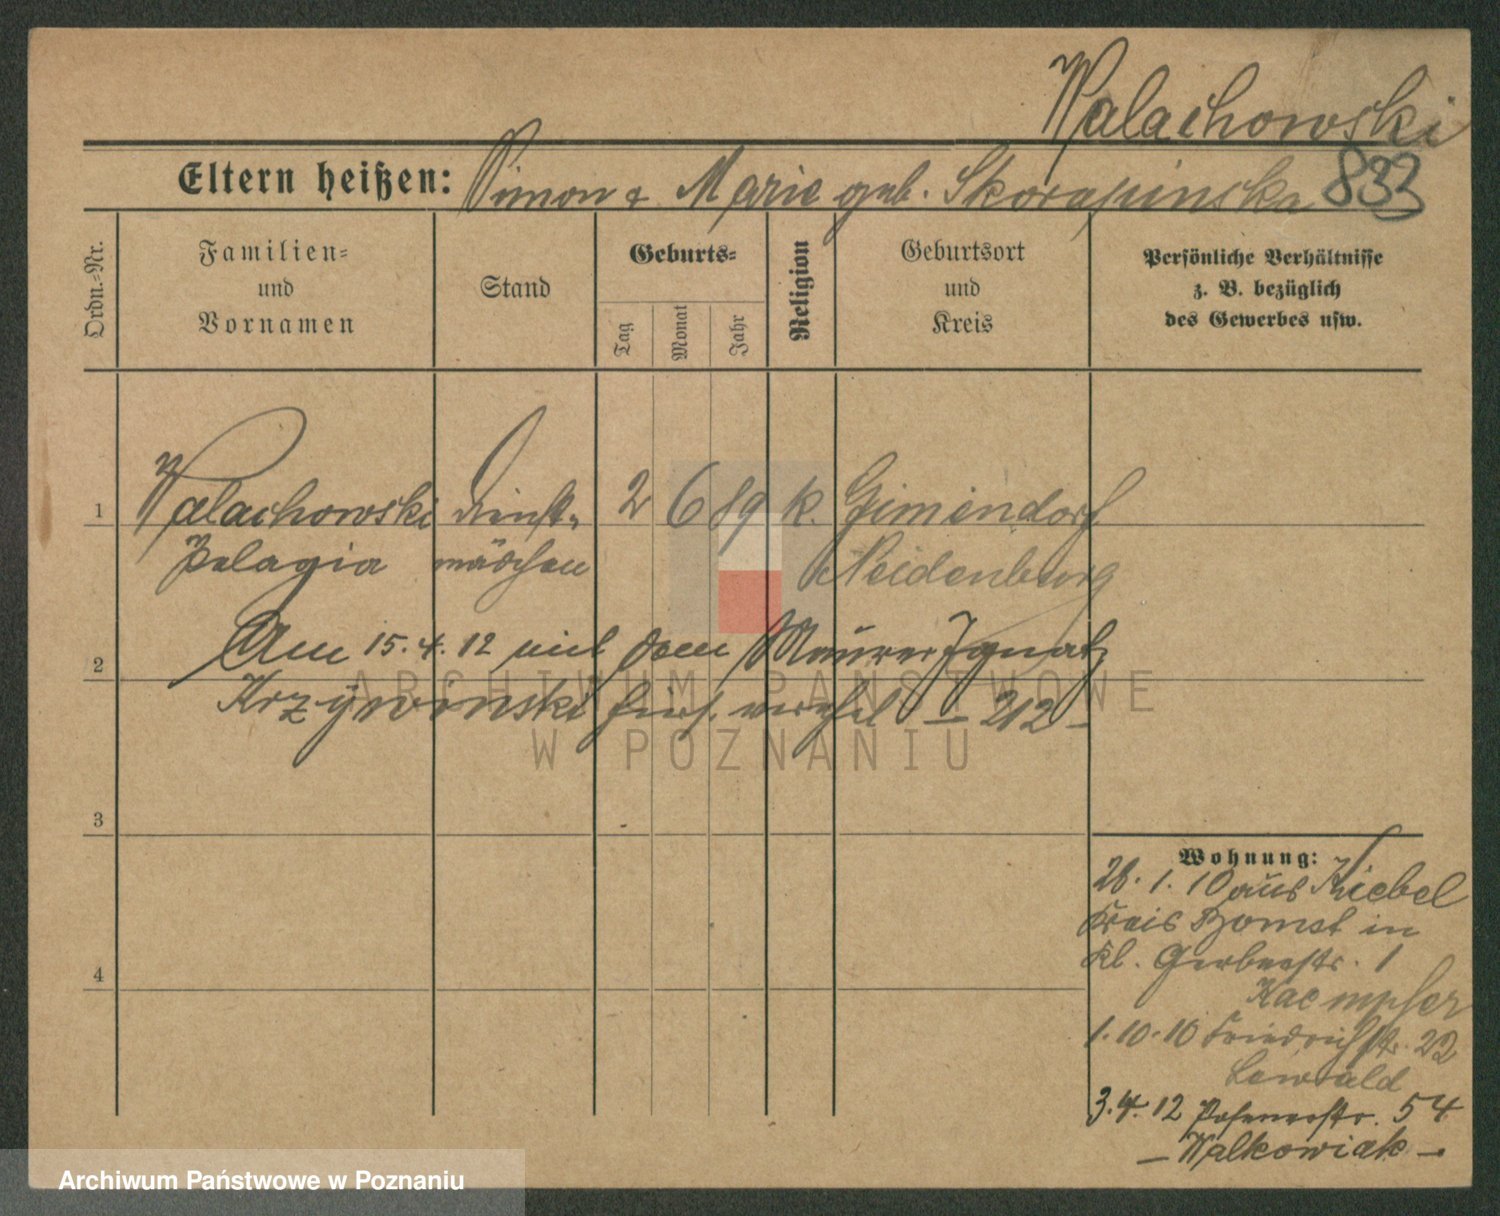 Walachowski
833
Eltern heißen: Simon & Marie geb. Skorapinska
Ordn.-Nr.
Familien-
und
Vornamen
Stand
Geburts-
Tag
Monat
Jahr
Religion
Geburtsort
und
Kreis
Persönliche Verhältnisse
z. B. bezüglich
des Gewerbes usw.
1 Walachowski Dienst- 2 6 89 k. Gimmendorf
Pelagia mädchen Neidenburg
Am 15.4.12 mit dem Maurer Ignatz
2
Krzywinski hier verehel — 212 —
3
4
Wohnung:
26.1.10 aus Kiebel
Kreis Bomst in
Kl. Gerberstr. 1
Kaempfer
1.10.10 Friedrichstr. 22
Lewald
3.4.12 Posenerstr. 54
— Walkowiak —
ARCHIWUM PAŃSTWOWE
W POZNANIU
Archiwum Państwowe w Poznaniu